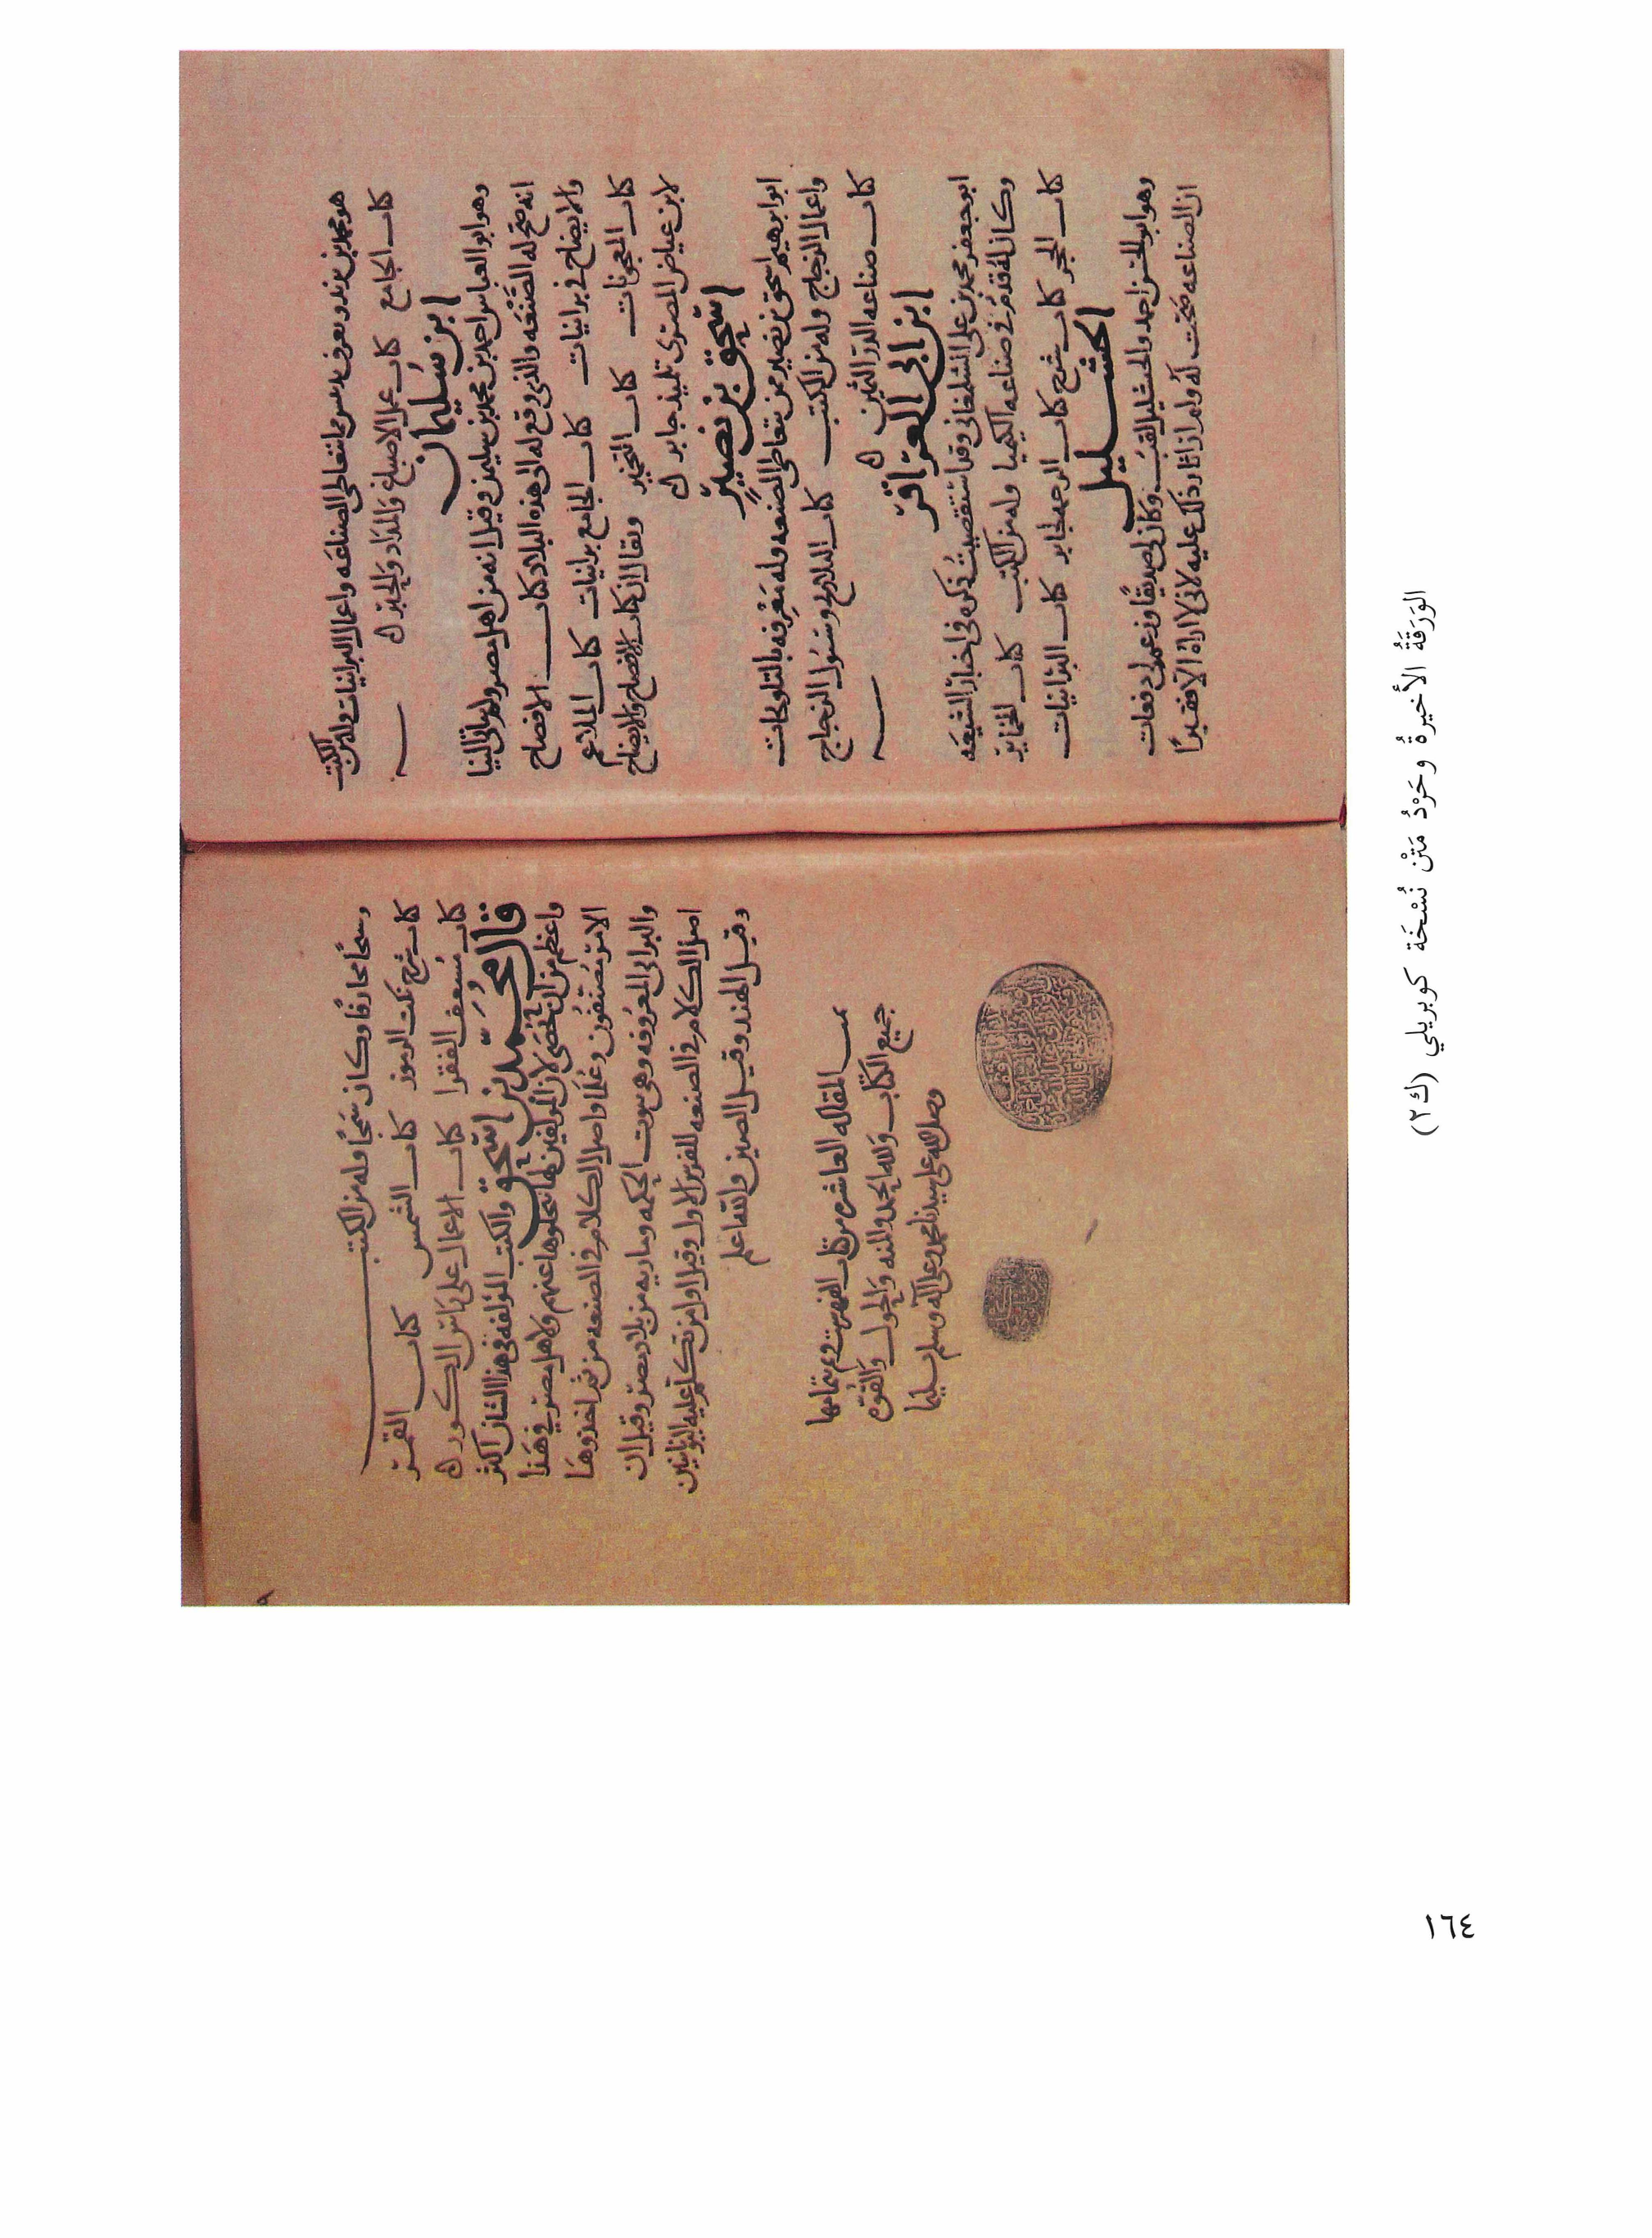 هو محمد بن يزيد ويعرف بدبيس ممن يتعاطى الصناعه واعمال البرانيات وله من الكتب
كتاب الجامع كتاب عمل الاصباغ والمداد والحبر
ابن سليمان
وهو ابو العباس احمد بن محمد بن سليمن وقيل انه من اهل مصر ولم يتأد الينا
انه صح له الصنعه والذى وقع له الى هذه البلاد كتاب الافصاح
والايضاح فى برانيات كتاب الجامع برانيات كتاب الملاغم
كتاب المعجونات كتاب التخمير ويقال ان كتاب الافصاح والايضاح
لابن عياض المصرى تلميذ جابر
اسحق بن نصير
ابو ابرهيم اسحق بن نصير ممن يتعاطى الصنعه وله معرفه بالتلويحات
واعمال الزجاج وله من الكتب كتاب التلاويح وسيول الزجاج
كتاب صناعه الدر الثمين
ابن ابى العزاقر
ابو جعفر محمد بن على الشلمغانى وقد استقصيت ذكره فى اخبار الشيعه
وكان له قدم فى صناعه الكيميا وله من الكتب كتاب الخماير
كتاب الحجر كتاب شرح كتاب الرحمه لجابر كتاب البرانيات
الخنشليل
وهو ابو الحسن احمد والخنشليل لقب وكان لى صديقا وزعم لى دفعات
ان الصناعه صحت له ولم ار اثار ذلك عليه لانى لا اراه الا فقيرا
وشيخا محارفا وكان سمجا وله من الكتب
كتاب شرح نكت الرموز كتاب الشمس كتاب القمر
كتاب مسعف الفقرا كتاب الاعمال على راس الكور
قال محمد بن اسحق والكتب المؤلفه فى هذا الشان اكثر
واعظم من ان تحصى لان المولفين لها تنحلوها عنهم ولاهل مصر فى هذا
الامر مصنفون وعلما واصل الكلام فى الصنعه من ثم اخذوها
والبرابى المعروفه وهى بيوت الحكمه وماريه من بلاد مصر وقيل ان
اصل الكلام فى الصنعه للفرس الاول وقيل اول من تكلم عليه اليونانيين
وقيل الهند وقيل الصين والله اعلم
تمت المقاله العاشره من كتاب الفهرست وتم بتمامها
جميع الكتاب ولله الحمد والمنه والحول والقوه
وصلى الله على سيدنا محمد وعلى آله وسلم تسليما
الوَرَقَةُ الأخيرةُ وحَرْدُ مَتْن نُسْخَة كوبريلي (ك٢)
١٦٤